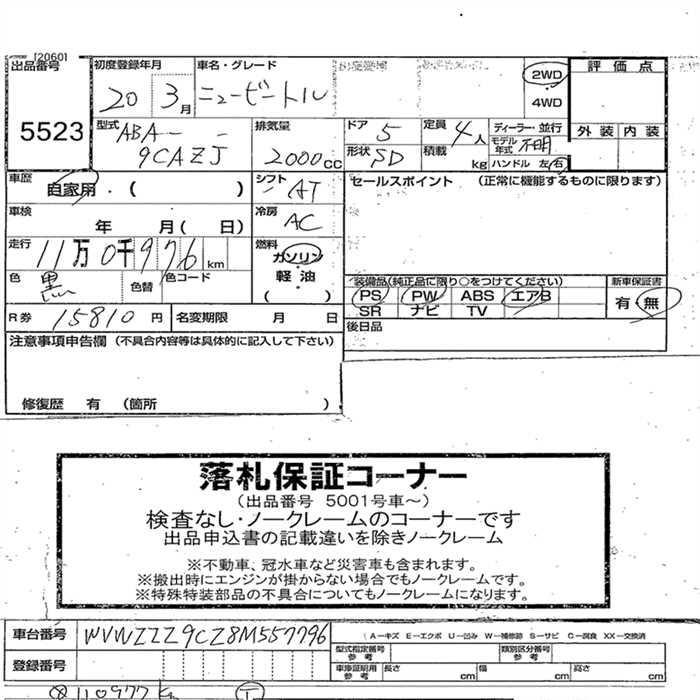 [2060]
出品番号 初度登録年月 車名・グレード 2WD 評価点
5523 20 3月 ニュービートル 4WD
型式 ABA- - 排気量 ドア 5 定員 4人 ディーラー・並行 外装 内装
モデル年式 不明
9CAZJ 2000cc 形状 SD 積載 kg ハンドル 左右
車歴 自家用・( ) シフト AT セールスポイント (正常に機能するものに限ります)
車検 年 月( 日) 冷房 AC
走行 11万0千976km 燃料 ガソリン
軽・油
( )
色 黒 色替 色コード
装備品(純正品に限り○をつけてください) 新車保証書
PS PW ABS エアB 有・無
SR ナビ TV
R券 15810円 名変期限 月 日 後日品
注意事項申告欄 (不具合内容等は具体的に記入して下さい)
修復歴 有 (箇所 )
落札保証コーナー
(出品番号 5001号車~)
検査なし・ノークレームのコーナーです
出品申込書の記載違いを除きノークレーム
※不動車、冠水車など災害車も含まれます。
※搬出時にエンジンが掛からない場合でもノークレームです。
※特殊特装部品の不具合についてもノークレームになります。
車台番号 WVWZZZ9CZ8M557796 (A-キズ E-エクボ U-凹み W-補修跡 S-サビ C-腐食 XX-交換済
型式指定番号 参考 類別区分番号 参考
登録番号 車庫証明用 参考 長さ cm 幅 cm 高さ cm
110977km